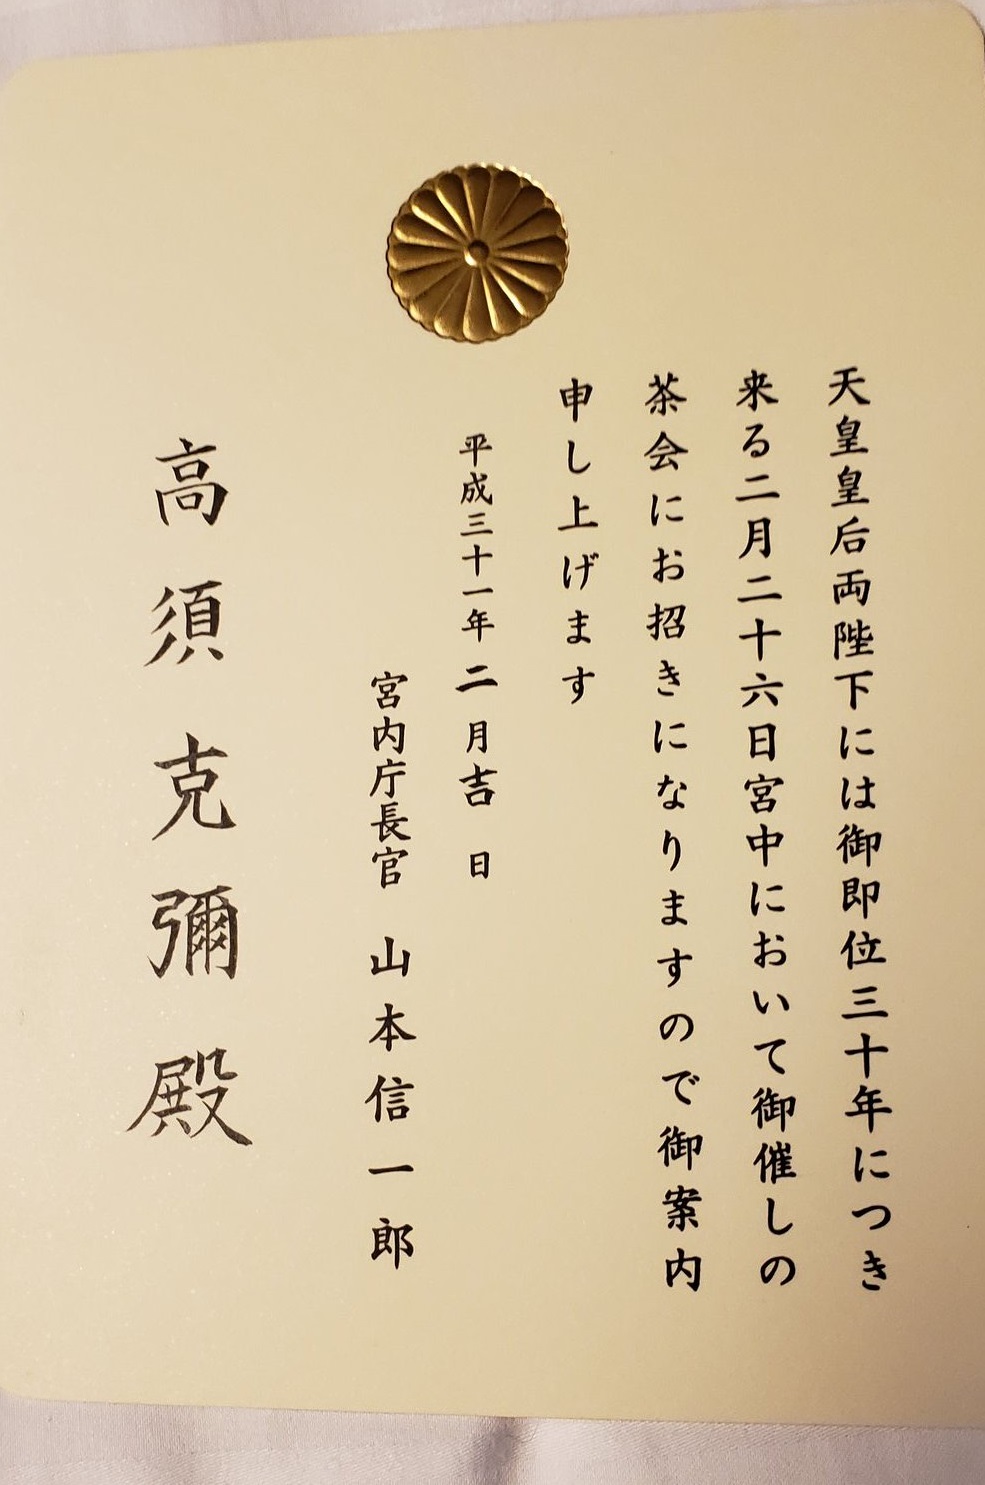 天皇皇后両陛下には御即位三十年につき
来る二月二十六日宮中において御催しの
茶会にお招きになりますので御案内
申し上げます
平成三十一年二月吉日
宮内庁長官 山本信一郎
高須克彌殿